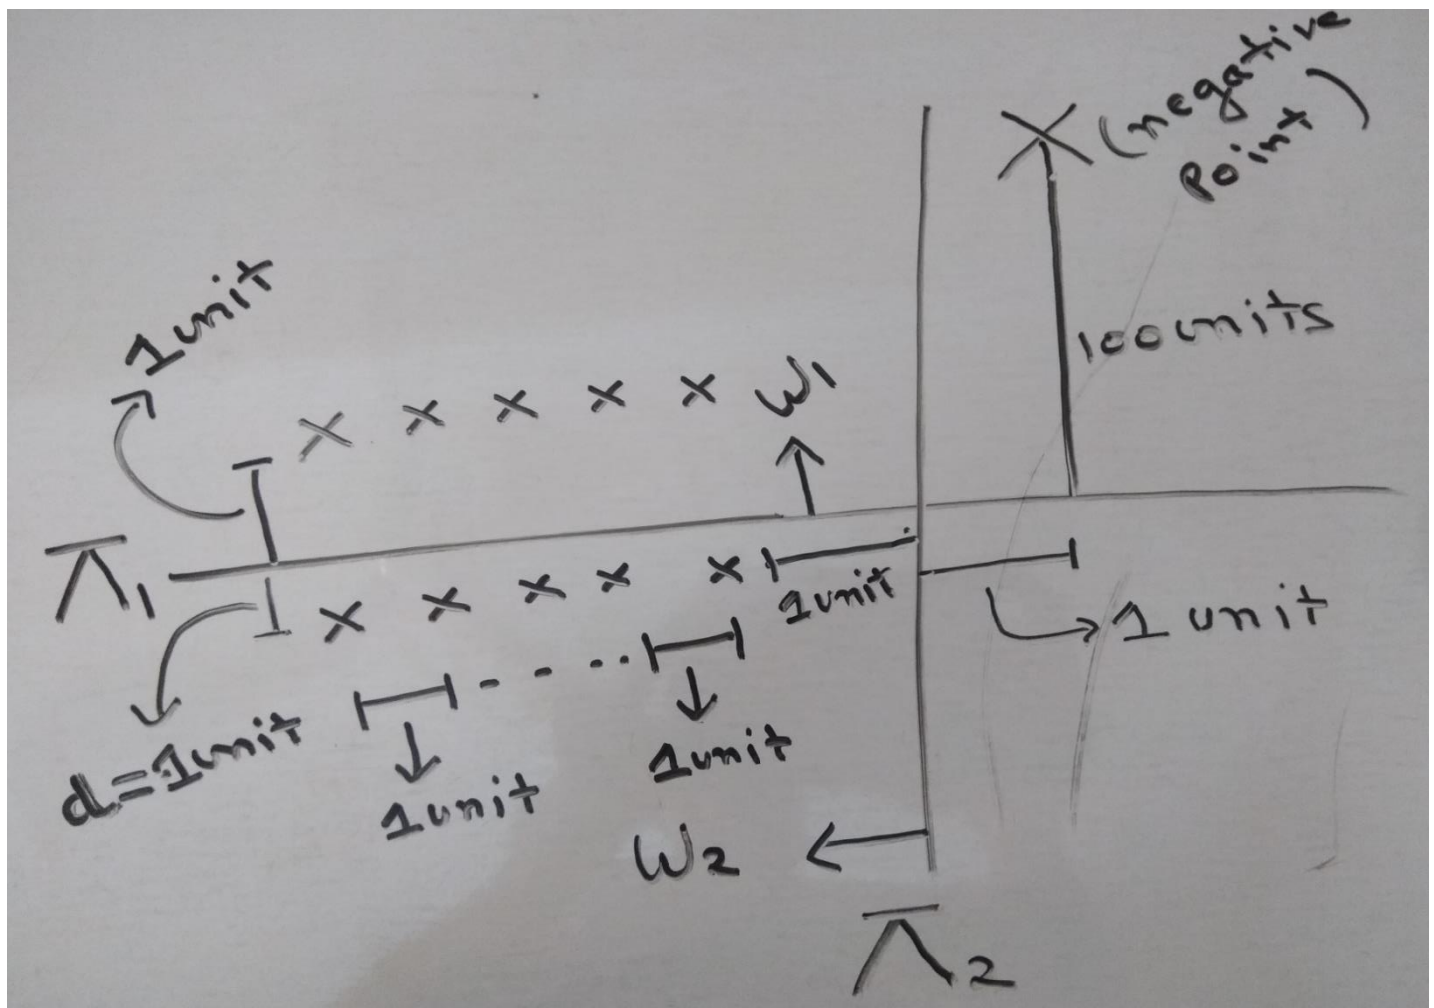 X (negative
Point)
1 unit
100 units
X X X X X W1
π1
X X X X X
1 unit
1 unit
d=1 unit
1 unit
1 unit
W2
π2